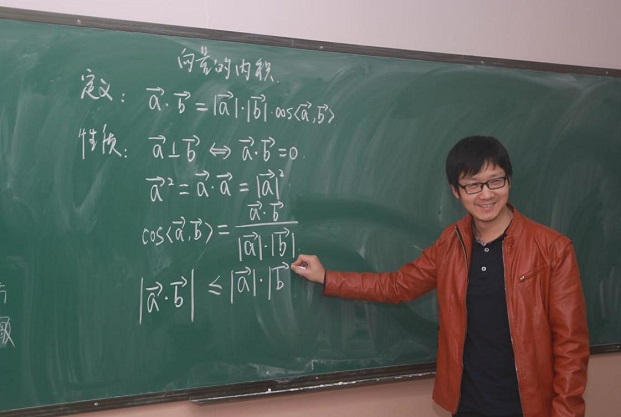 向量的内积
定义: a⃗·b⃗=|a⃗|·|b⃗|·cos⟨a⃗,b⃗⟩
性质: a⃗⊥b⃗ ⇔ a⃗·b⃗=0.
a⃗²=a⃗·a⃗=|a⃗|²
cos⟨a⃗,b⃗⟩=a⃗·b⃗/|a⃗|·|b⃗|
|a⃗·b⃗|≤|a⃗|·|b⃗